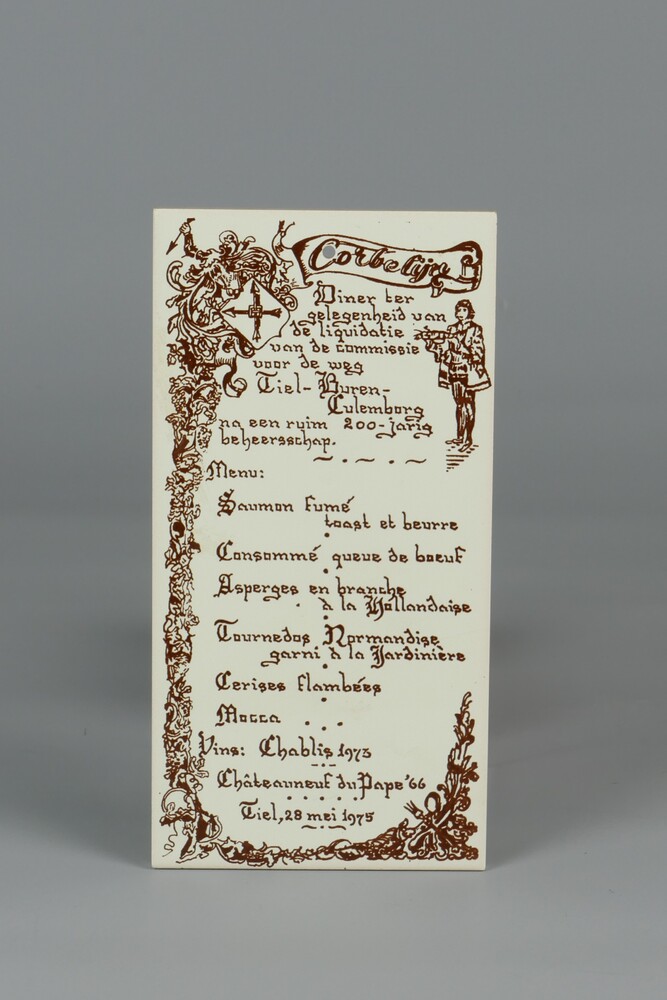 Corbelijn
Diner ter
gelegenheid van
de liquidatie
van de commissie
voor de weg
Tiel-Buren-
Culemborg
na een ruim 200-jarig
beheersschap.
Menu:
Saumon fumé
toast et beurre
Consommé queue de boeuf
Asperges en branche
à la Hollandaise
Tournedos Normandise
garni à la Jardinière
Cerises flambées
Mocca ...
Vins: Chablis 1973
Châteauneuf du Pape '66
Tiel, 28 mei 1975